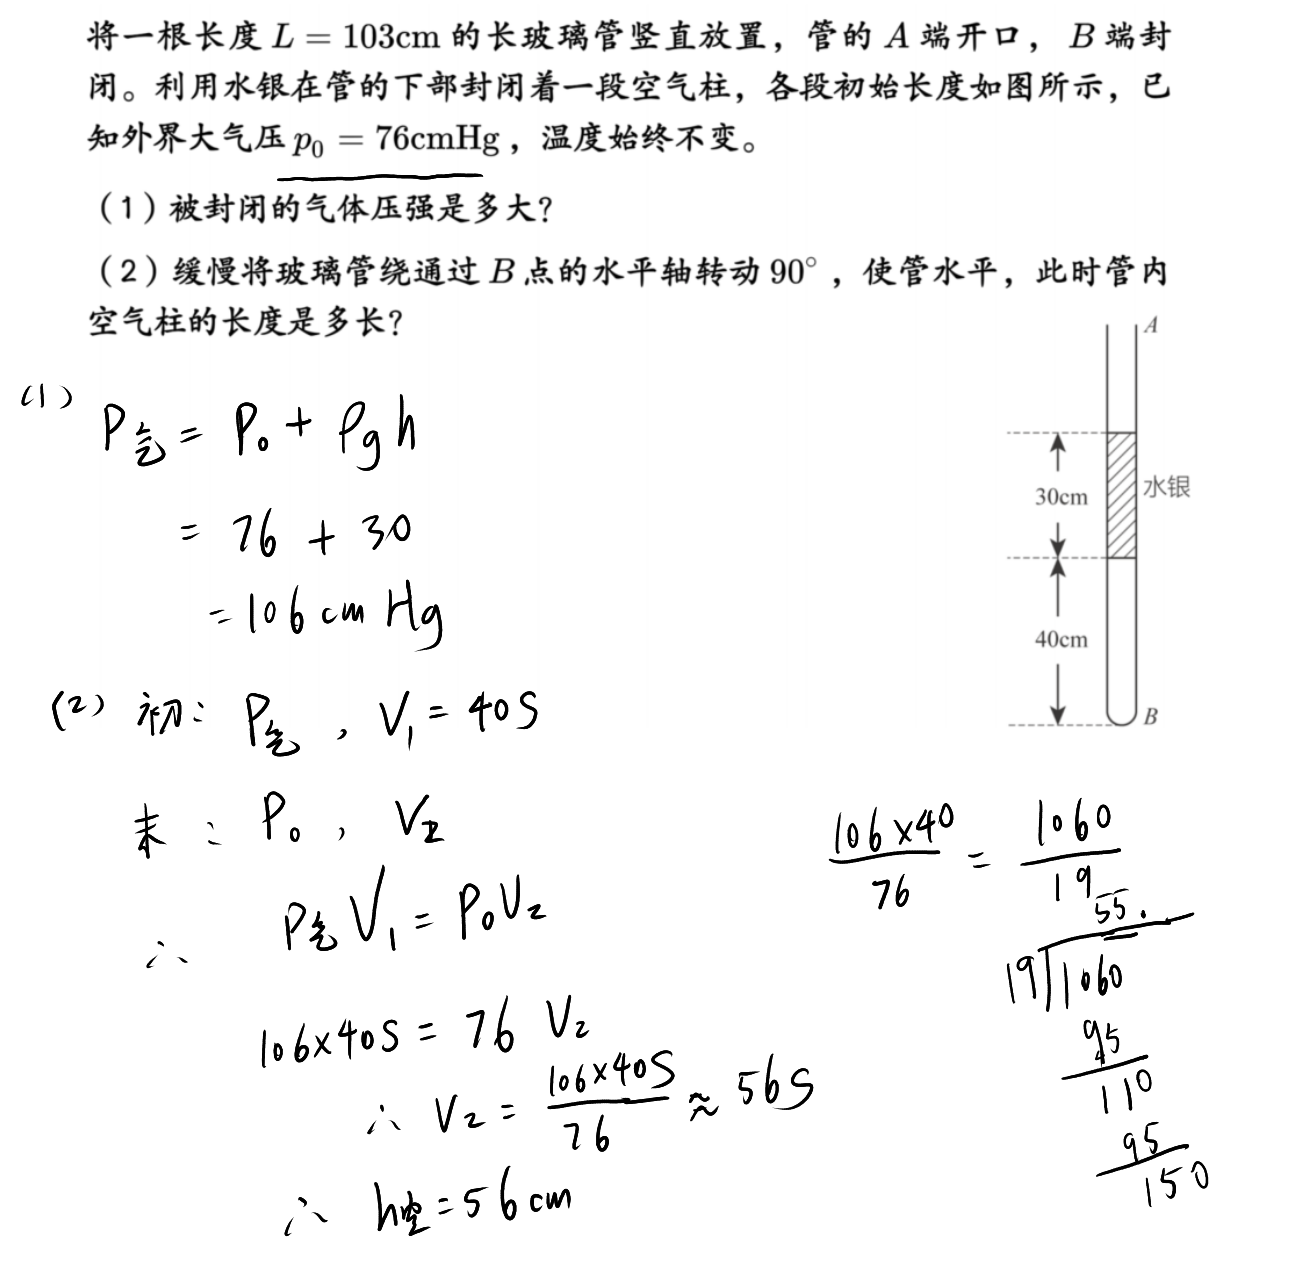 将一根长度 L = 103cm 的长玻璃管竖直放置，管的 A 端开口， B 端封
闭。利用水银在管的下部封闭着一段空气柱，各段初始长度如图所示，已
知外界大气压 p₀ = 76cmHg ，温度始终不变。
（1）被封闭的气体压强是多大？
（2）缓慢将玻璃管绕通过 B 点的水平轴转动 90° ，使管水平，此时管内
空气柱的长度是多长？
A
30cm
水银
40cm
B
(1)
P气 = P₀ + ρgh
= 76 + 30
= 106 cm Hg
(2) 初: P气 , V₁ = 40S
末: P₀ , V₂
∴ P气V₁ = P₀V₂
106×40S = 76 V₂
∴ V₂ = 106×40S/76 ≈ 56S
∴ h空 = 56 cm
106×40/76 = 1060/19
55.
19 1060
95
110
95
150